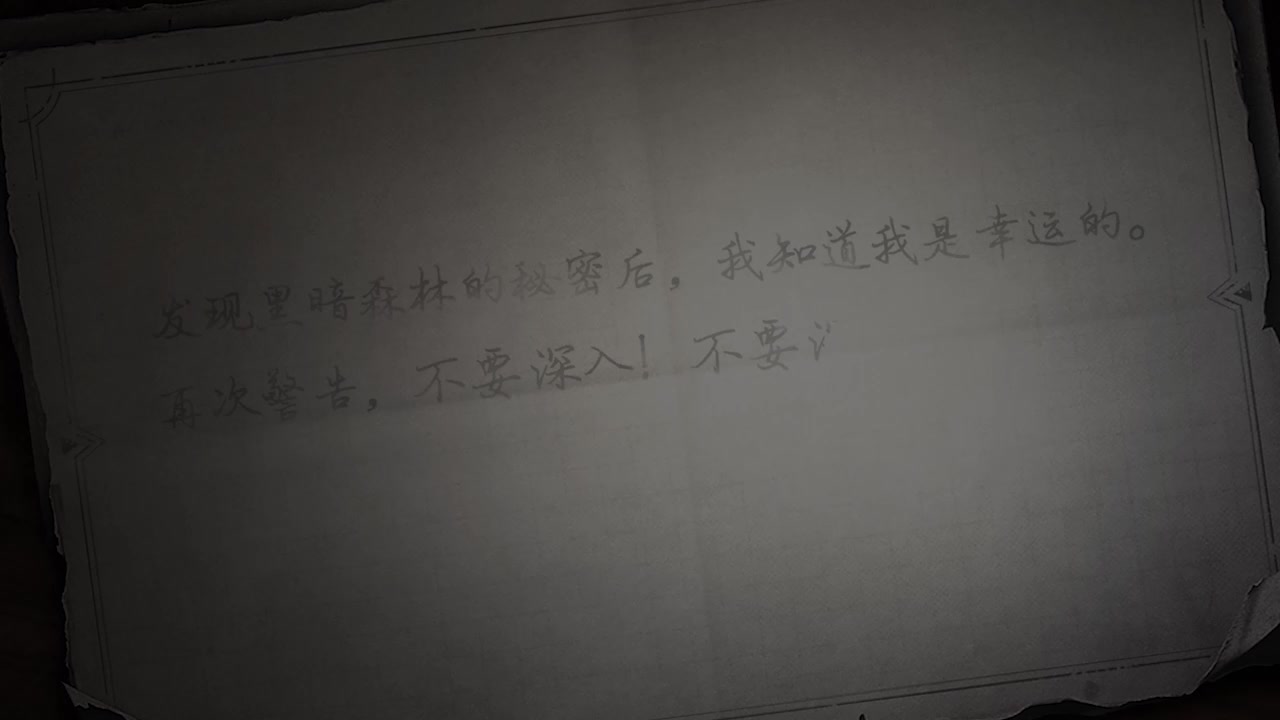 发现黑暗森林的秘密后，我知道我是幸运的。
再次警告，不要深入！不要